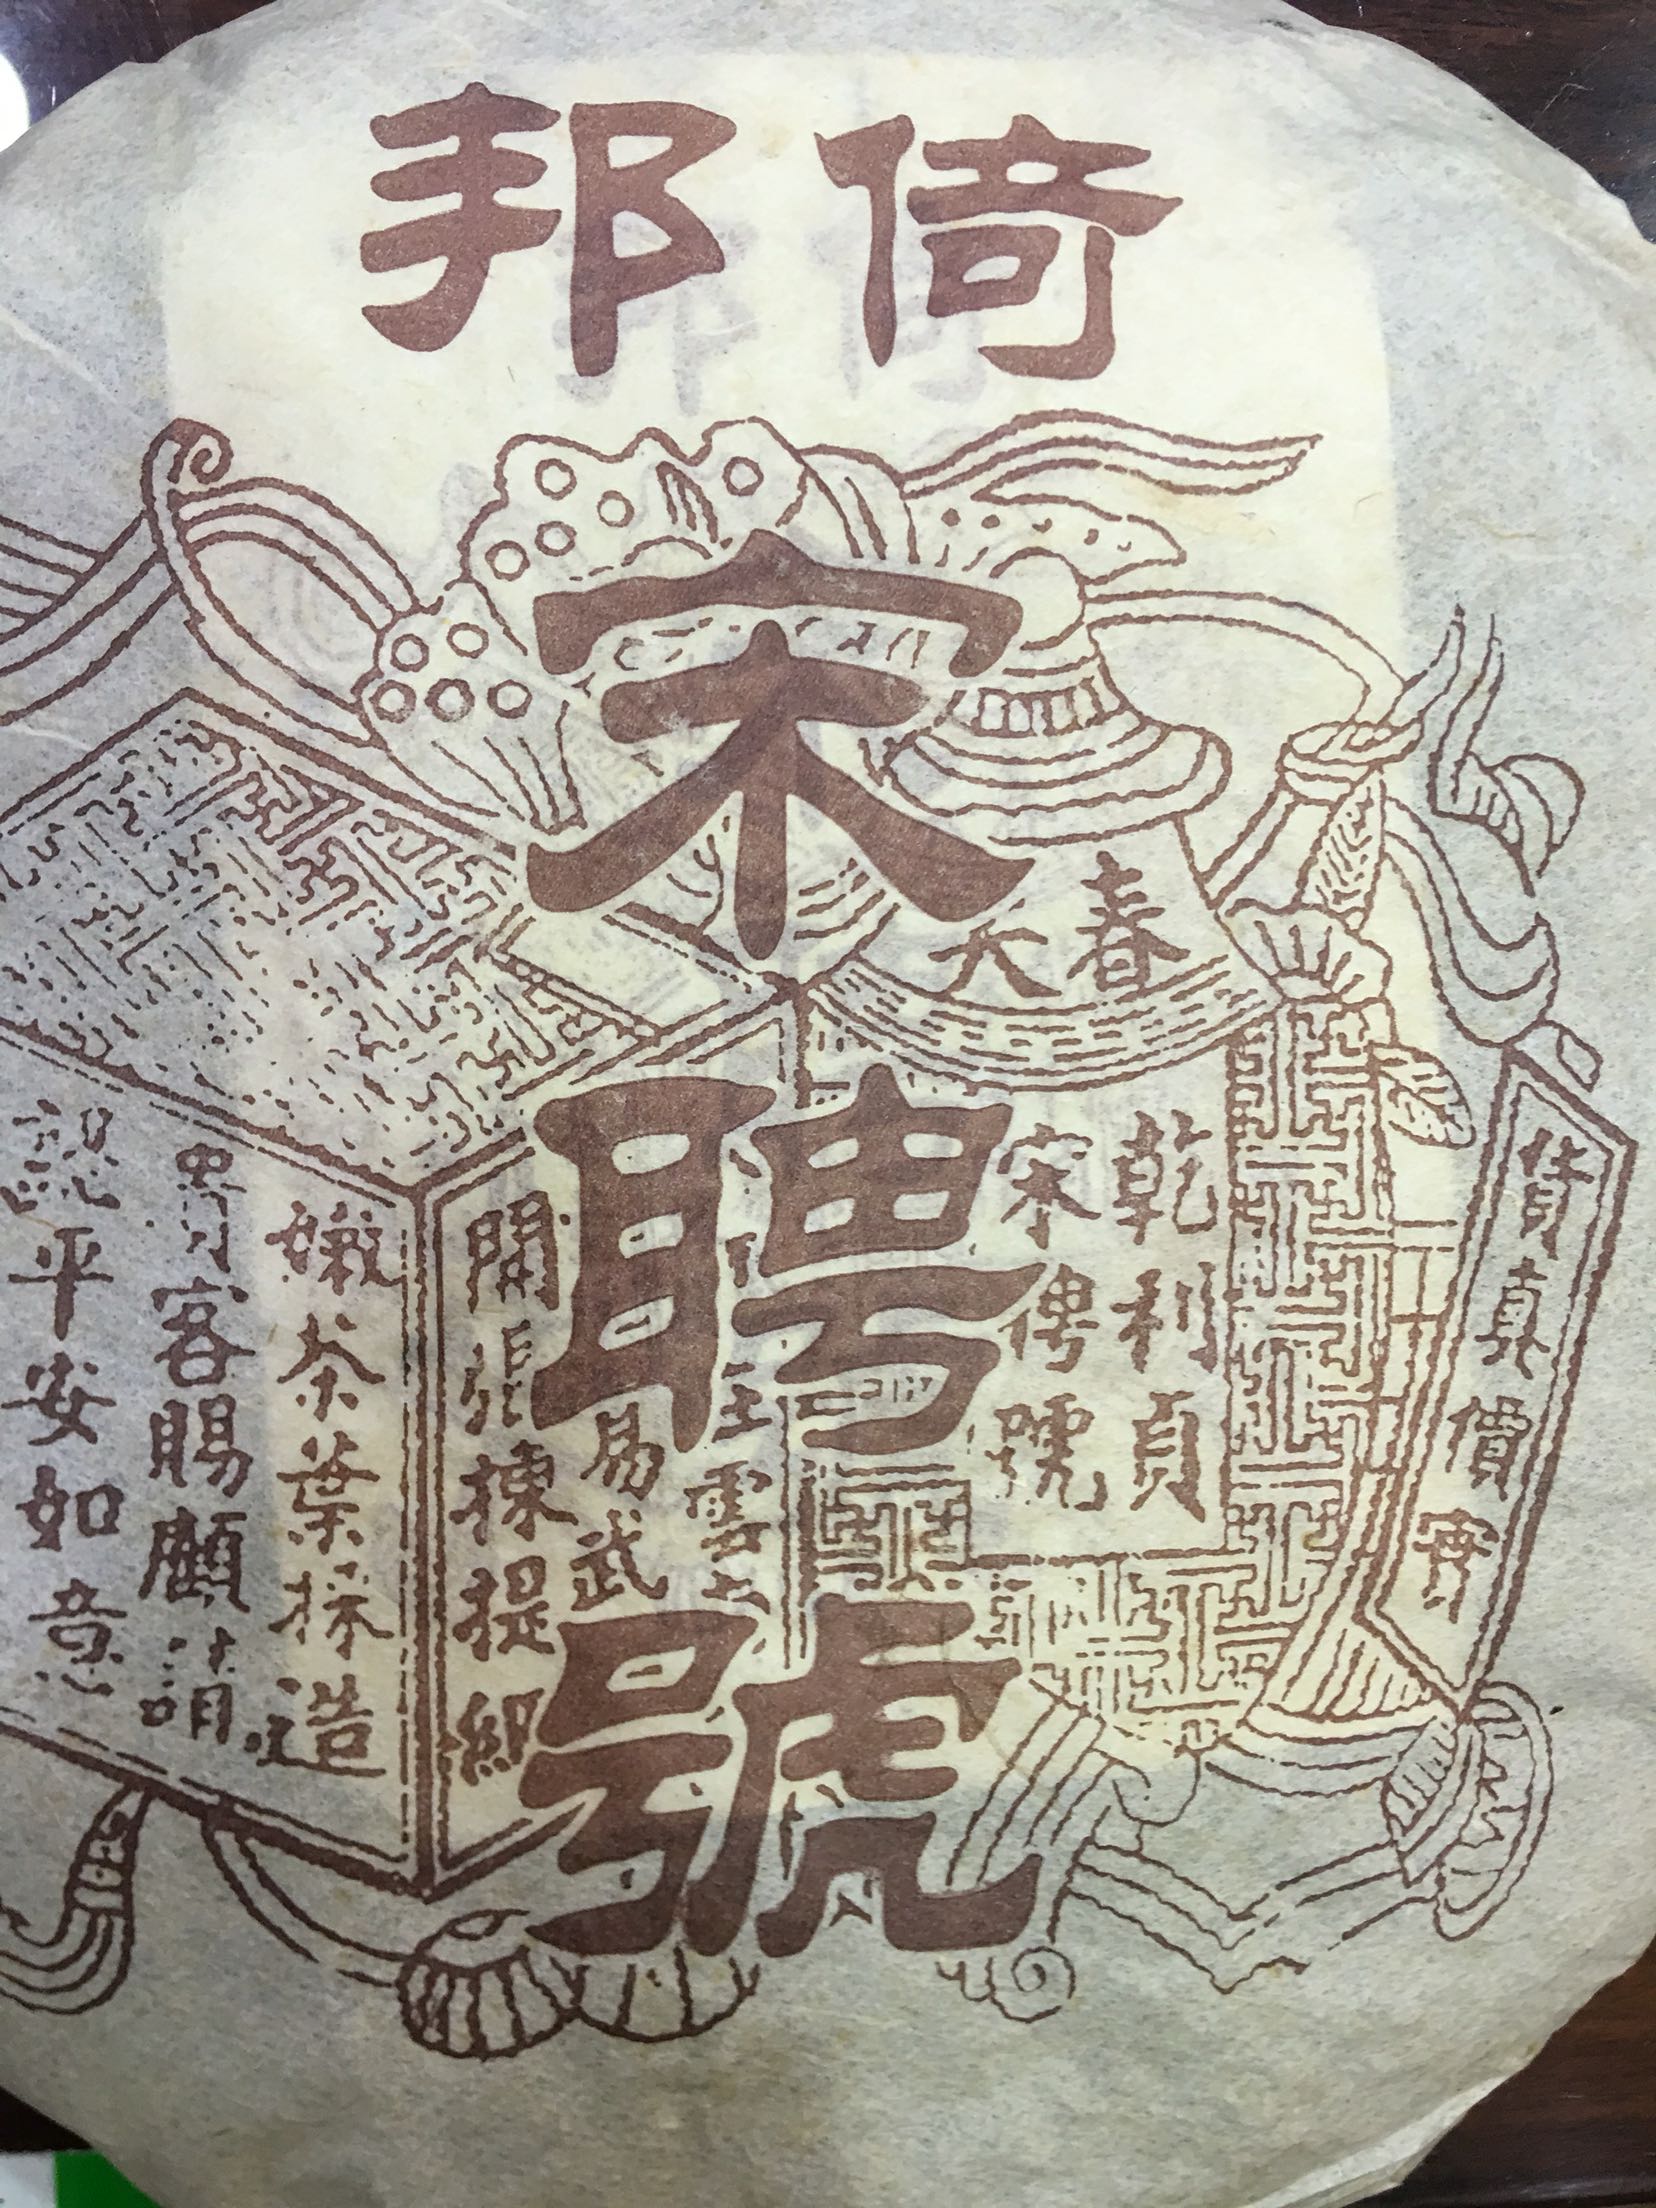 倚邦
宋聘號
春大
貨真價實
乾利貞
宋傳號
雲上
易武
開張揀提細
嫩茶葉採造
客賜顧請
認平安如意